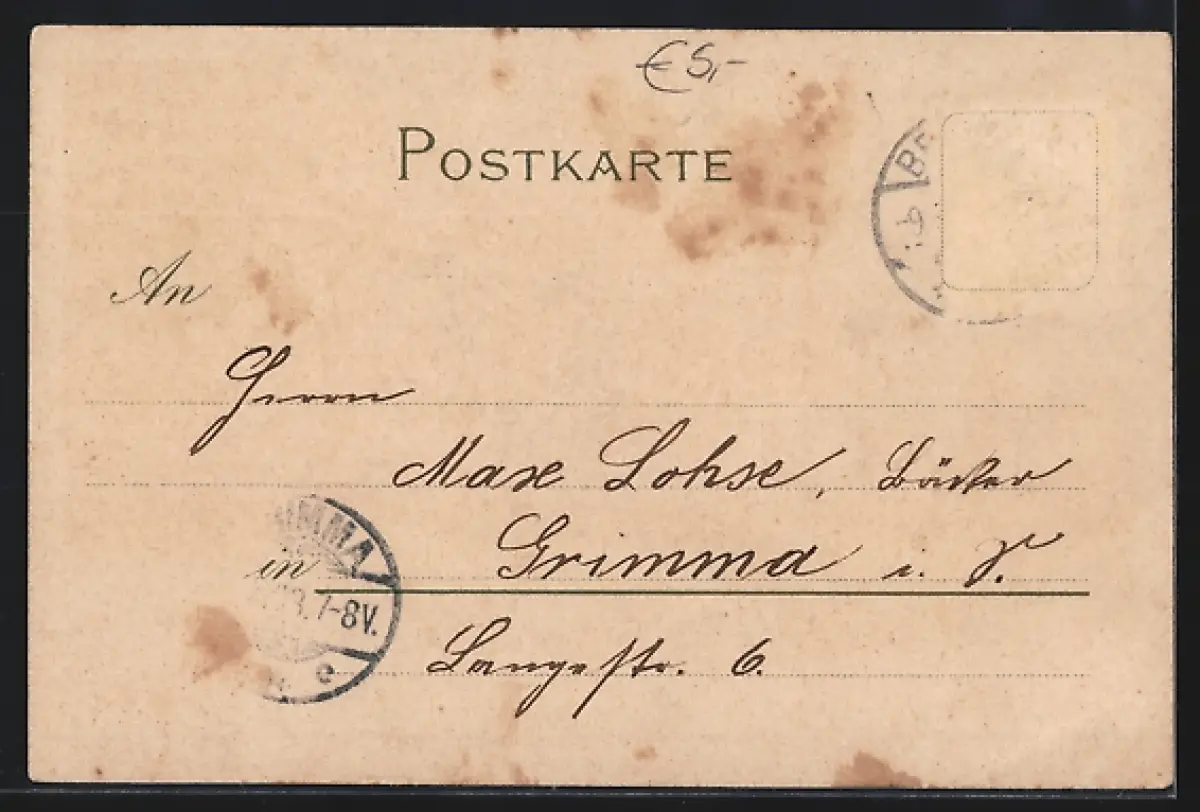 € 5,-
POSTKARTE
An
Herrn
Max Lohse, Bäcker
in Grimma i. S.
Langestr. 6.
IMMA
8. 7-8V.
e